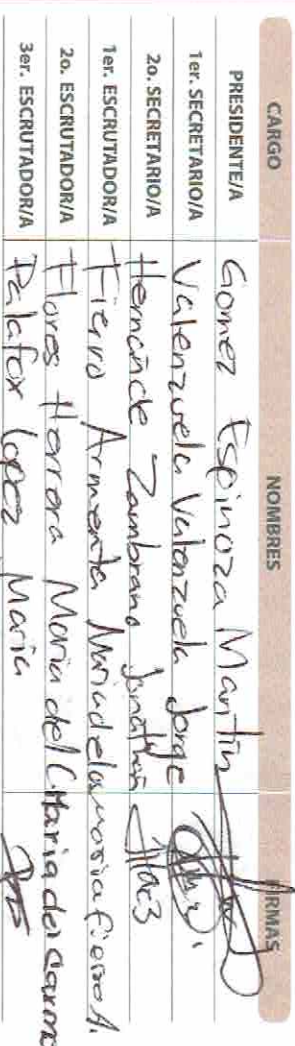 CARGO NOMBRES FIRMAS
PRESIDENTE/A Gomez Espinoza Martin
1er. SECRETARIO/A Valenzuela Valenzuela Jorge
2o. SECRETARIO/A Hernánde Zambrano Jonathan
1er. ESCRUTADOR/A Fierro Armenta Maria fierro A.
2o. ESCRUTADOR/A Flores Herrera Maria del C Maria del Carmen
3er. ESCRUTADOR/A Palafox Lopez Maria